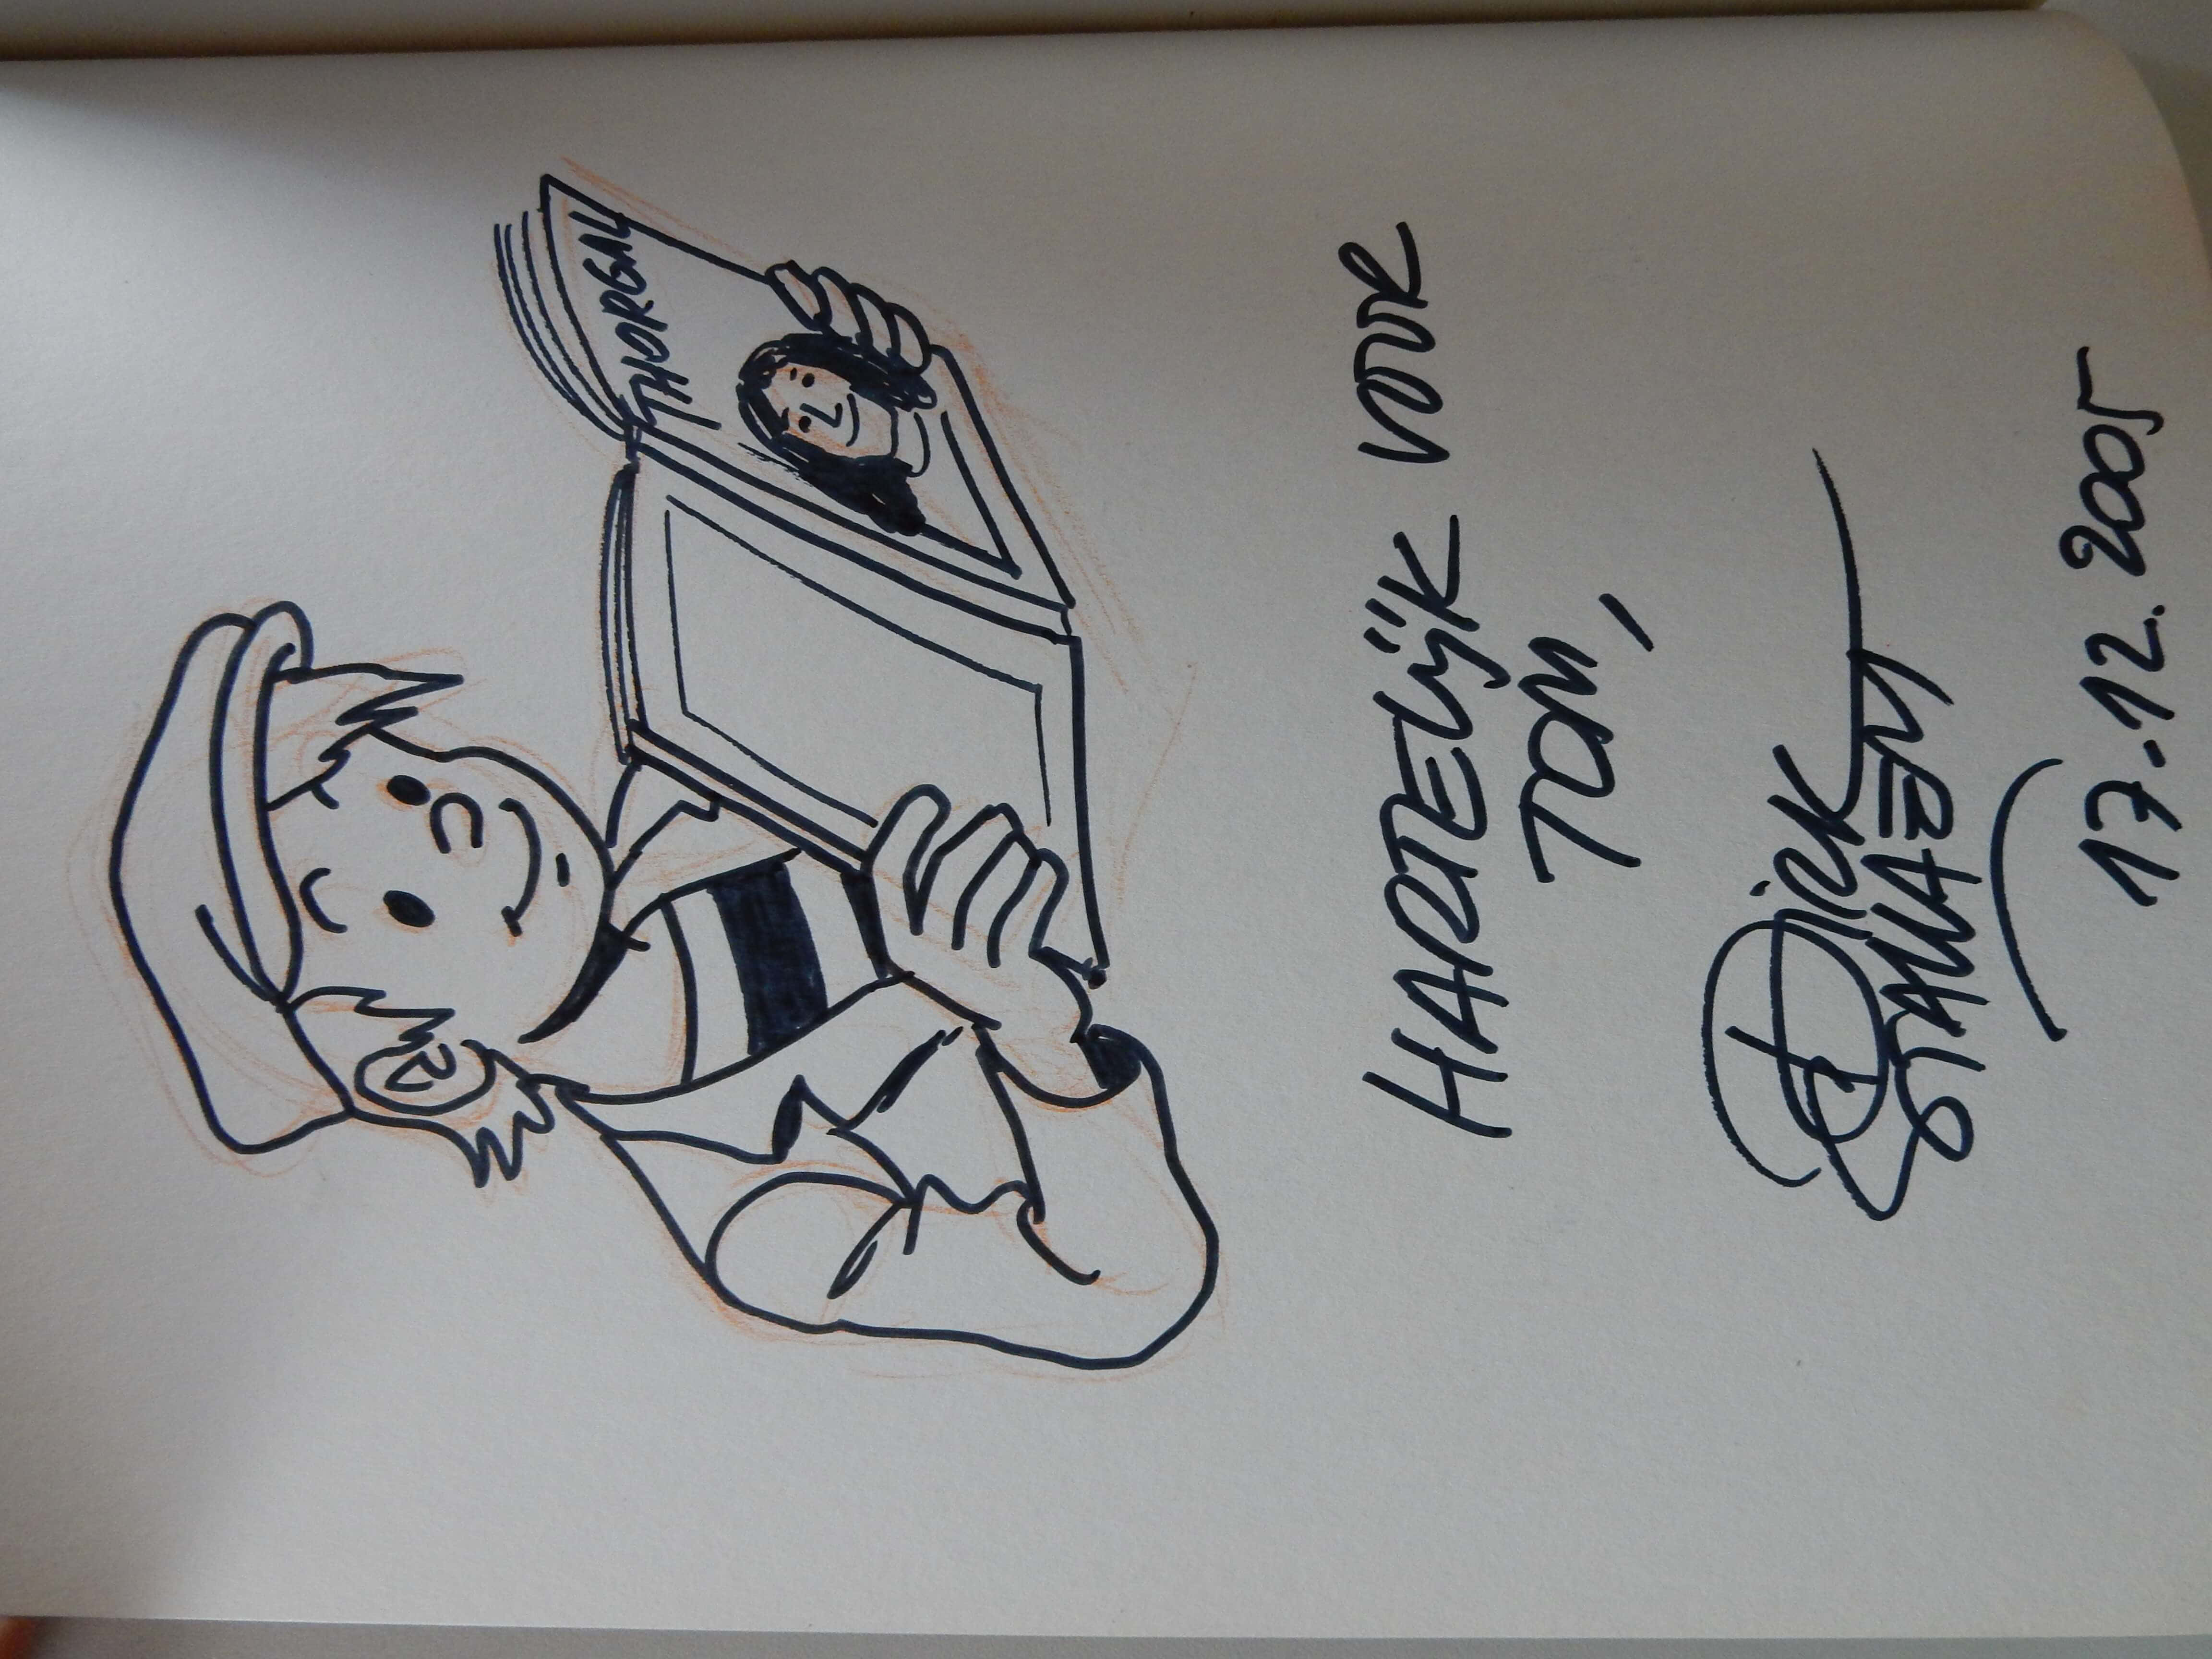 THORGAL
HARTELIJK VOOR
TOM,
DIRK
STALLAERT
17.12.2005